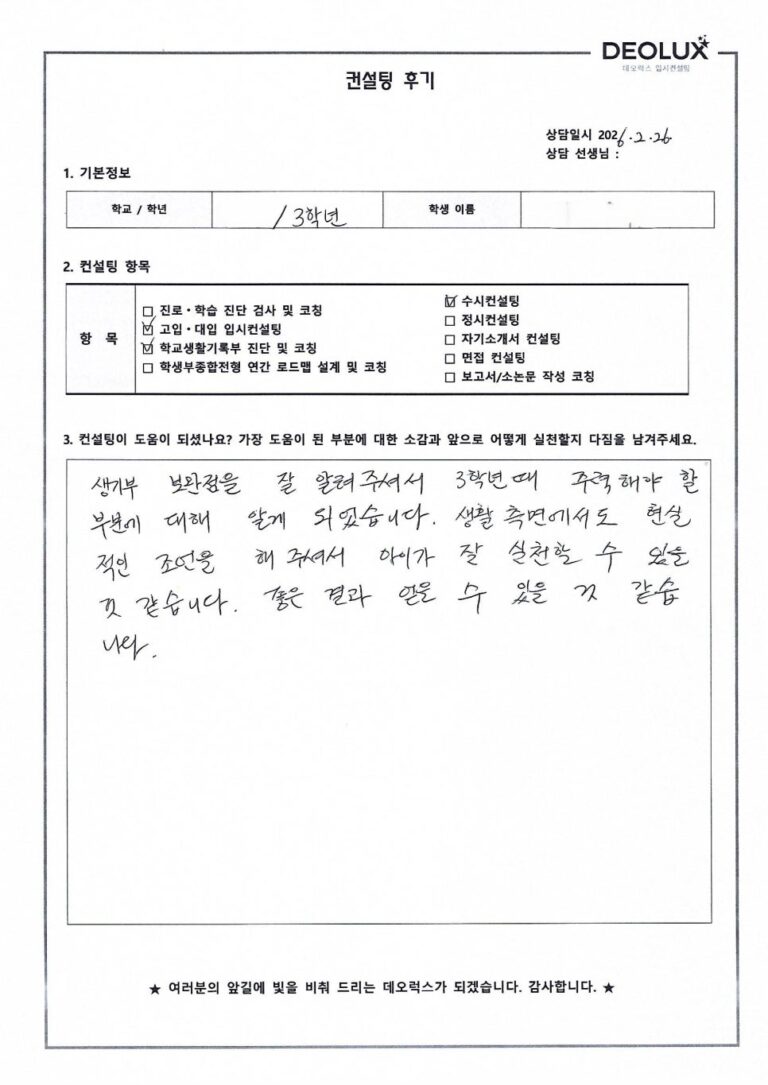 DEOLUX
데오럭스 입시컨설팅
컨설팅 후기
상담일시 2026.2.26
상담 선생님 :
1. 기본정보
학교 / 학년 / 3학년 학생 이름
2. 컨설팅 항목
항 목
☐ 진로·학습 진단 검사 및 코칭
☑ 고입·대입 입시컨설팅
☑ 학교생활기록부 진단 및 코칭
☐ 학생부종합전형 연간 로드맵 설계 및 코칭
☑ 수시컨설팅
☐ 정시컨설팅
☐ 자기소개서 컨설팅
☐ 면접 컨설팅
☐ 보고서/소논문 작성 코칭
3. 컨설팅이 도움이 되셨나요? 가장 도움이 된 부분에 대한 소감과 앞으로 어떻게 실천할지 다짐을 남겨주세요.
생기부 보완점을 잘 알려주셔서 3학년 때 주력해야 할
부분에 대해 알게 되었습니다. 생활 측면에서도 현실
적인 조언을 해 주셔서 아이가 잘 실천할 수 있을
것 같습니다. 좋은 결과 얻을 수 있을 것 같습
니다.
★ 여러분의 앞길에 빛을 비춰 드리는 데오럭스가 되겠습니다. 감사합니다. ★